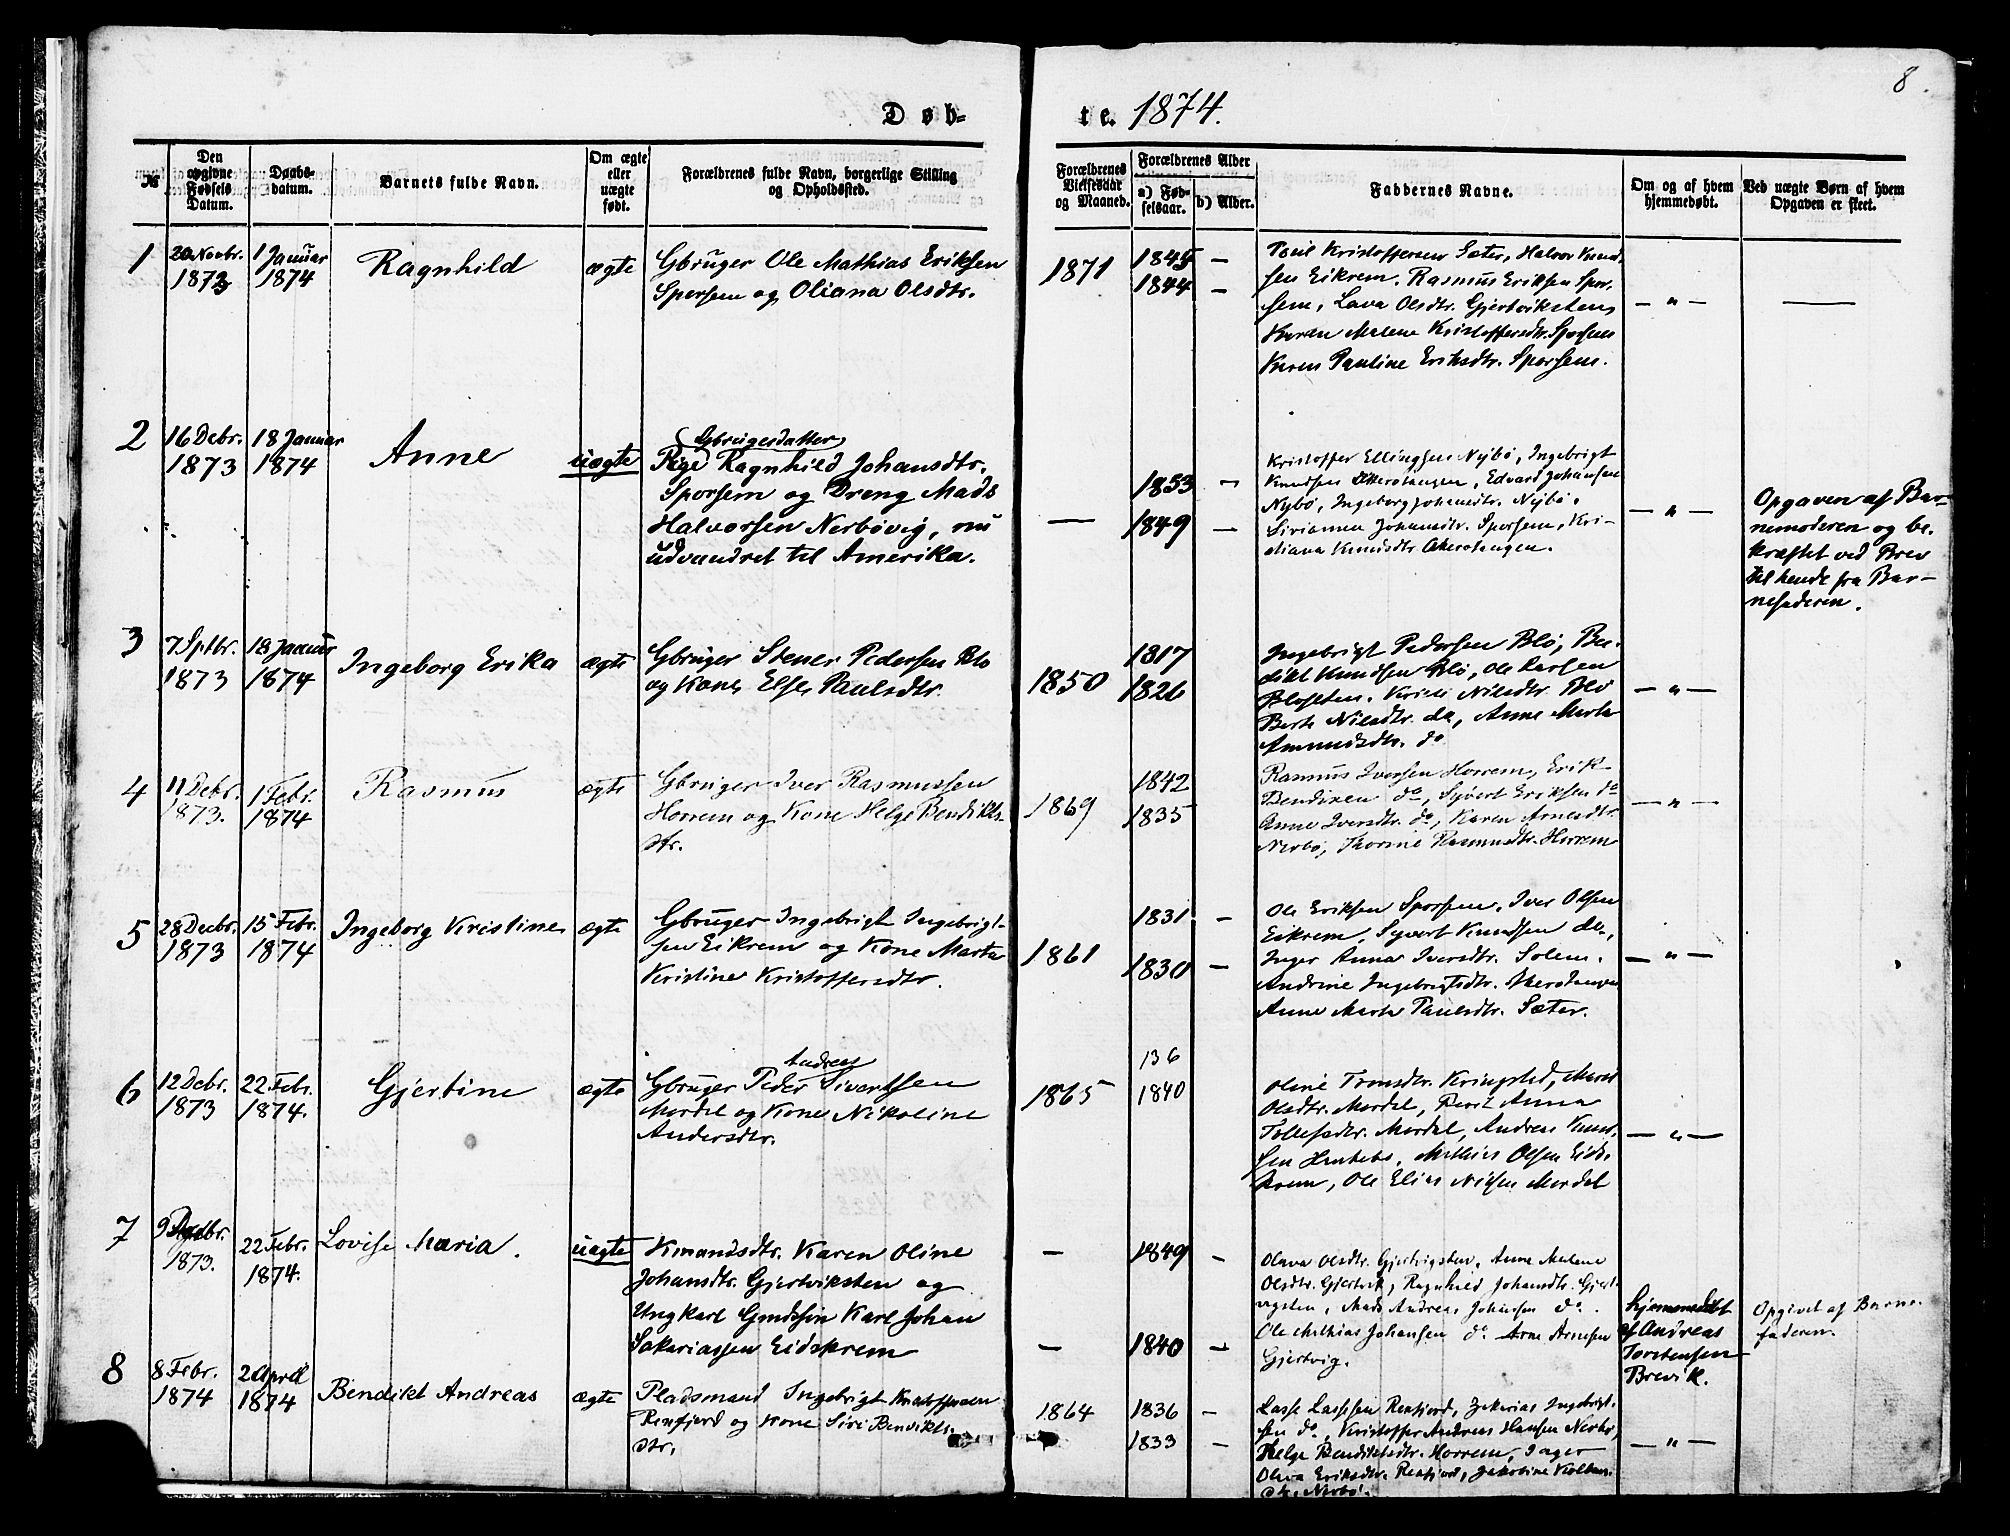 8.
Døb-
te. 1874.
№
Den opgivne Fødsels Datum.
Daabs-datum.
Barnets fulde Navn.
Om ægte eller uægte født.
Forældrenes fulde Navn, borgerlige Stilling og Opholdssted.
Forældrenes Vielsesaar og Maaned.
Forældrenes Alder
a) Fød-selsaar.
b) Alder.
Faddernes Navne.
Om og af hvem hjemmedøbt.
Ved uægte Børn af hvem Opgaven er skeet.
1
20 Novbr.
1873
1 Januar
1874
Ragnhild
ægte
Gbruger Ole Mathias Eriksen
Sporsem og Oliana Olsdtr.
1871
1845 —
1844 —
Poul Kristoffersen Sæter, Halvor Knud-
sen Eikrem. Rasmus Eriksen Spor-
sem, Lava Olsdtr. Gjertviksten
Karen Malene Kristoffersdtr. Sporsem
Karen Pauline Eriksdtr. Sporsem.
— " —
—
2
16 Debr.
1873
18 Januar
1874
Anne
uægte
Gbrugerdatter
Pige Ragnhild Johansdtr.
Sporsem og Dreng Mads
Halvorsen Nerbövig, nu
udvandret til Amerika.
—
1853 —
1849 —
Kristoffer Ellingsen Nybö, Ingebrigt
Knudsen Akerotangen, Edvard Johansen
Nybö, Ingeborg Johansdtr. Nybö.
Sirianna Johansdtr. Sporsem, Kri-
stiana Knudsdtr. Akerotangen.
— " —
Opgaven af Bar-
nemoderen og be-
kræftet ved Brev
til hende fra Bar-
nefaderen.
3
7 Sptbr.
1873
18 Januar
1874
Ingeborg Erika
ægte
Gbruger Stener Pedersen Blö
og Kone Else Paulsdtr.
1850
1817
1826
Ingebrigt Pedersen Blö, Ben-
dikt Knudsen Blö, Ole Larsen
Kristi Nilsdtr. Blö
Berte Nilsdtr. do, Anne Marta
Amundsdtr. do
— " —
4
11 Debr.
1873.
1 Febr.
1874
Rasmus
ægte
Gbruger Iver Rasmussen
Horrem og Kone Helge Bendikts-
dtr.
1869
1842
1835
Rasmus Iversen Horrem, Erik
Bendixen do, Syvert Eriksen do
Anne Iversdtr. do, Karen Arnesdtr.
Nerbö, Thorine Rasmusdtr. Horrem
— " —
5
28 Decbr.
1873
15 Febr.
1874
Ingeborg Kristine
ægte
Gbruger Ingebrigt Ingebrigt-
sen Eikrem og Kone Marta
Kristine Kristoffersdtr.
1861
1831 —
1830 —
Ole Eriksen Sporsem, Iver Olsen
Eikrem, Syvert Knudsen do,
Inger Anna Iversdtr. Solem.
Andrine Ingebrigtsdtr. Akerotangen
Anne Marta Paulsdtr. Sæter.
— " —
6
12 Debr.
1873
22 Febr.
1874.
Gjertine
ægte
Andreas
Gbruger Peder Sivertsen
Mordal og Kone Nikoline
Andersdtr.
1865
136
1840
Oline Kringsted,
Olsdtr. Mordal, Anna
Tollefsdtr. Mordal, Andreas
sen Mathias Olsen Eids-
krem, Ole Elias Nilsen Mordal
— " —
7
9
1873.
22 Febr.
1874.
Lovise Maria.
uægte
Kmandsdtr. Karen Oline
Johansdtr. Gjertviksten og
Ungkarl Karl Johan
Sakariassen Eidskrem
—
1849 —
—
1840 —
Olava Olsdtr. Gjertvigsten, Anne Malene
Olsdtr. Gjertvik, Ragnhild Johansdtr. Gjert-
vigsten, Mads Andreas Johansen do.
Ole Mathias Johansen do Arne Arnesen
Gjertvig.
hjemmedöbt
af Andreas
Torstensen
Brevik.
Opgivet af Barne-
faderen.
8
8 Febr.
1874
2 April
1874
Bendikt Andreas
ægte
Pladsmand Ingebrigt Kristoffersen
Renfjord og Kone Siri Bendikts-
dtr.
1864
1836 —
1833 —
Lasse Lassesen Renfjord, Zakarias Ingebrigt-
sen do, Kristoffer Andreas Hansen Nerbö,
Helge Bendiktsdtr. Horrem, Inger
Olava Eriksdtr. Renfjord, Jakobine
dtr. Nerbö.
— " —